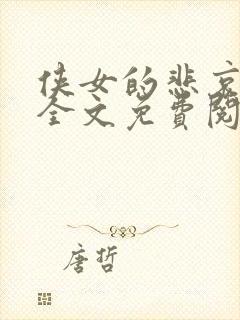 侠女的悲哀
全文免費閱
唐哲